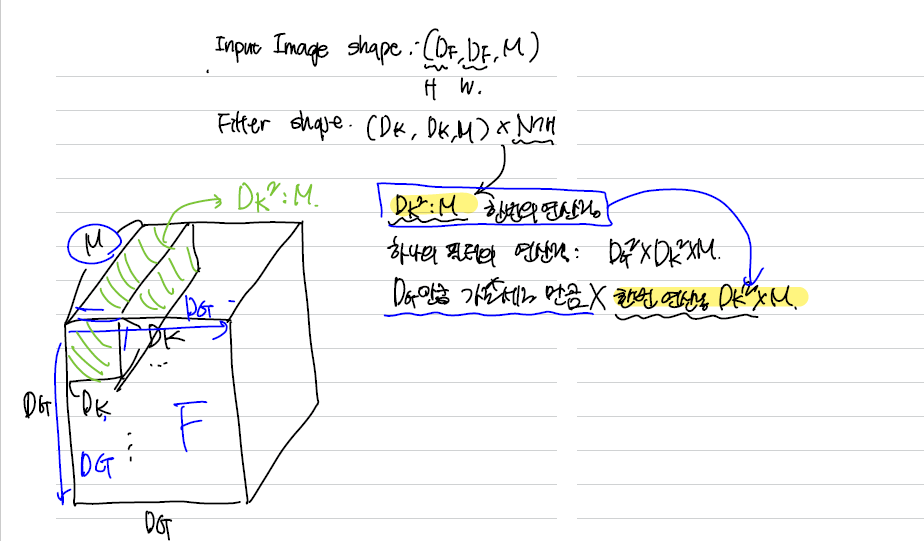 Input Image shape : (DF, DF, M)
H W.
Filter shape. (DK, DK, M) × N개
DK²:M.
DK²:M 한번의 연산량
하나의 필터의 연산량: DG²×DK²×M.
DG만큼 가로세로 만큼 × 한번 연산량 DK²×M.
M
DG
DK
...
DG
DK
F
DG
DG